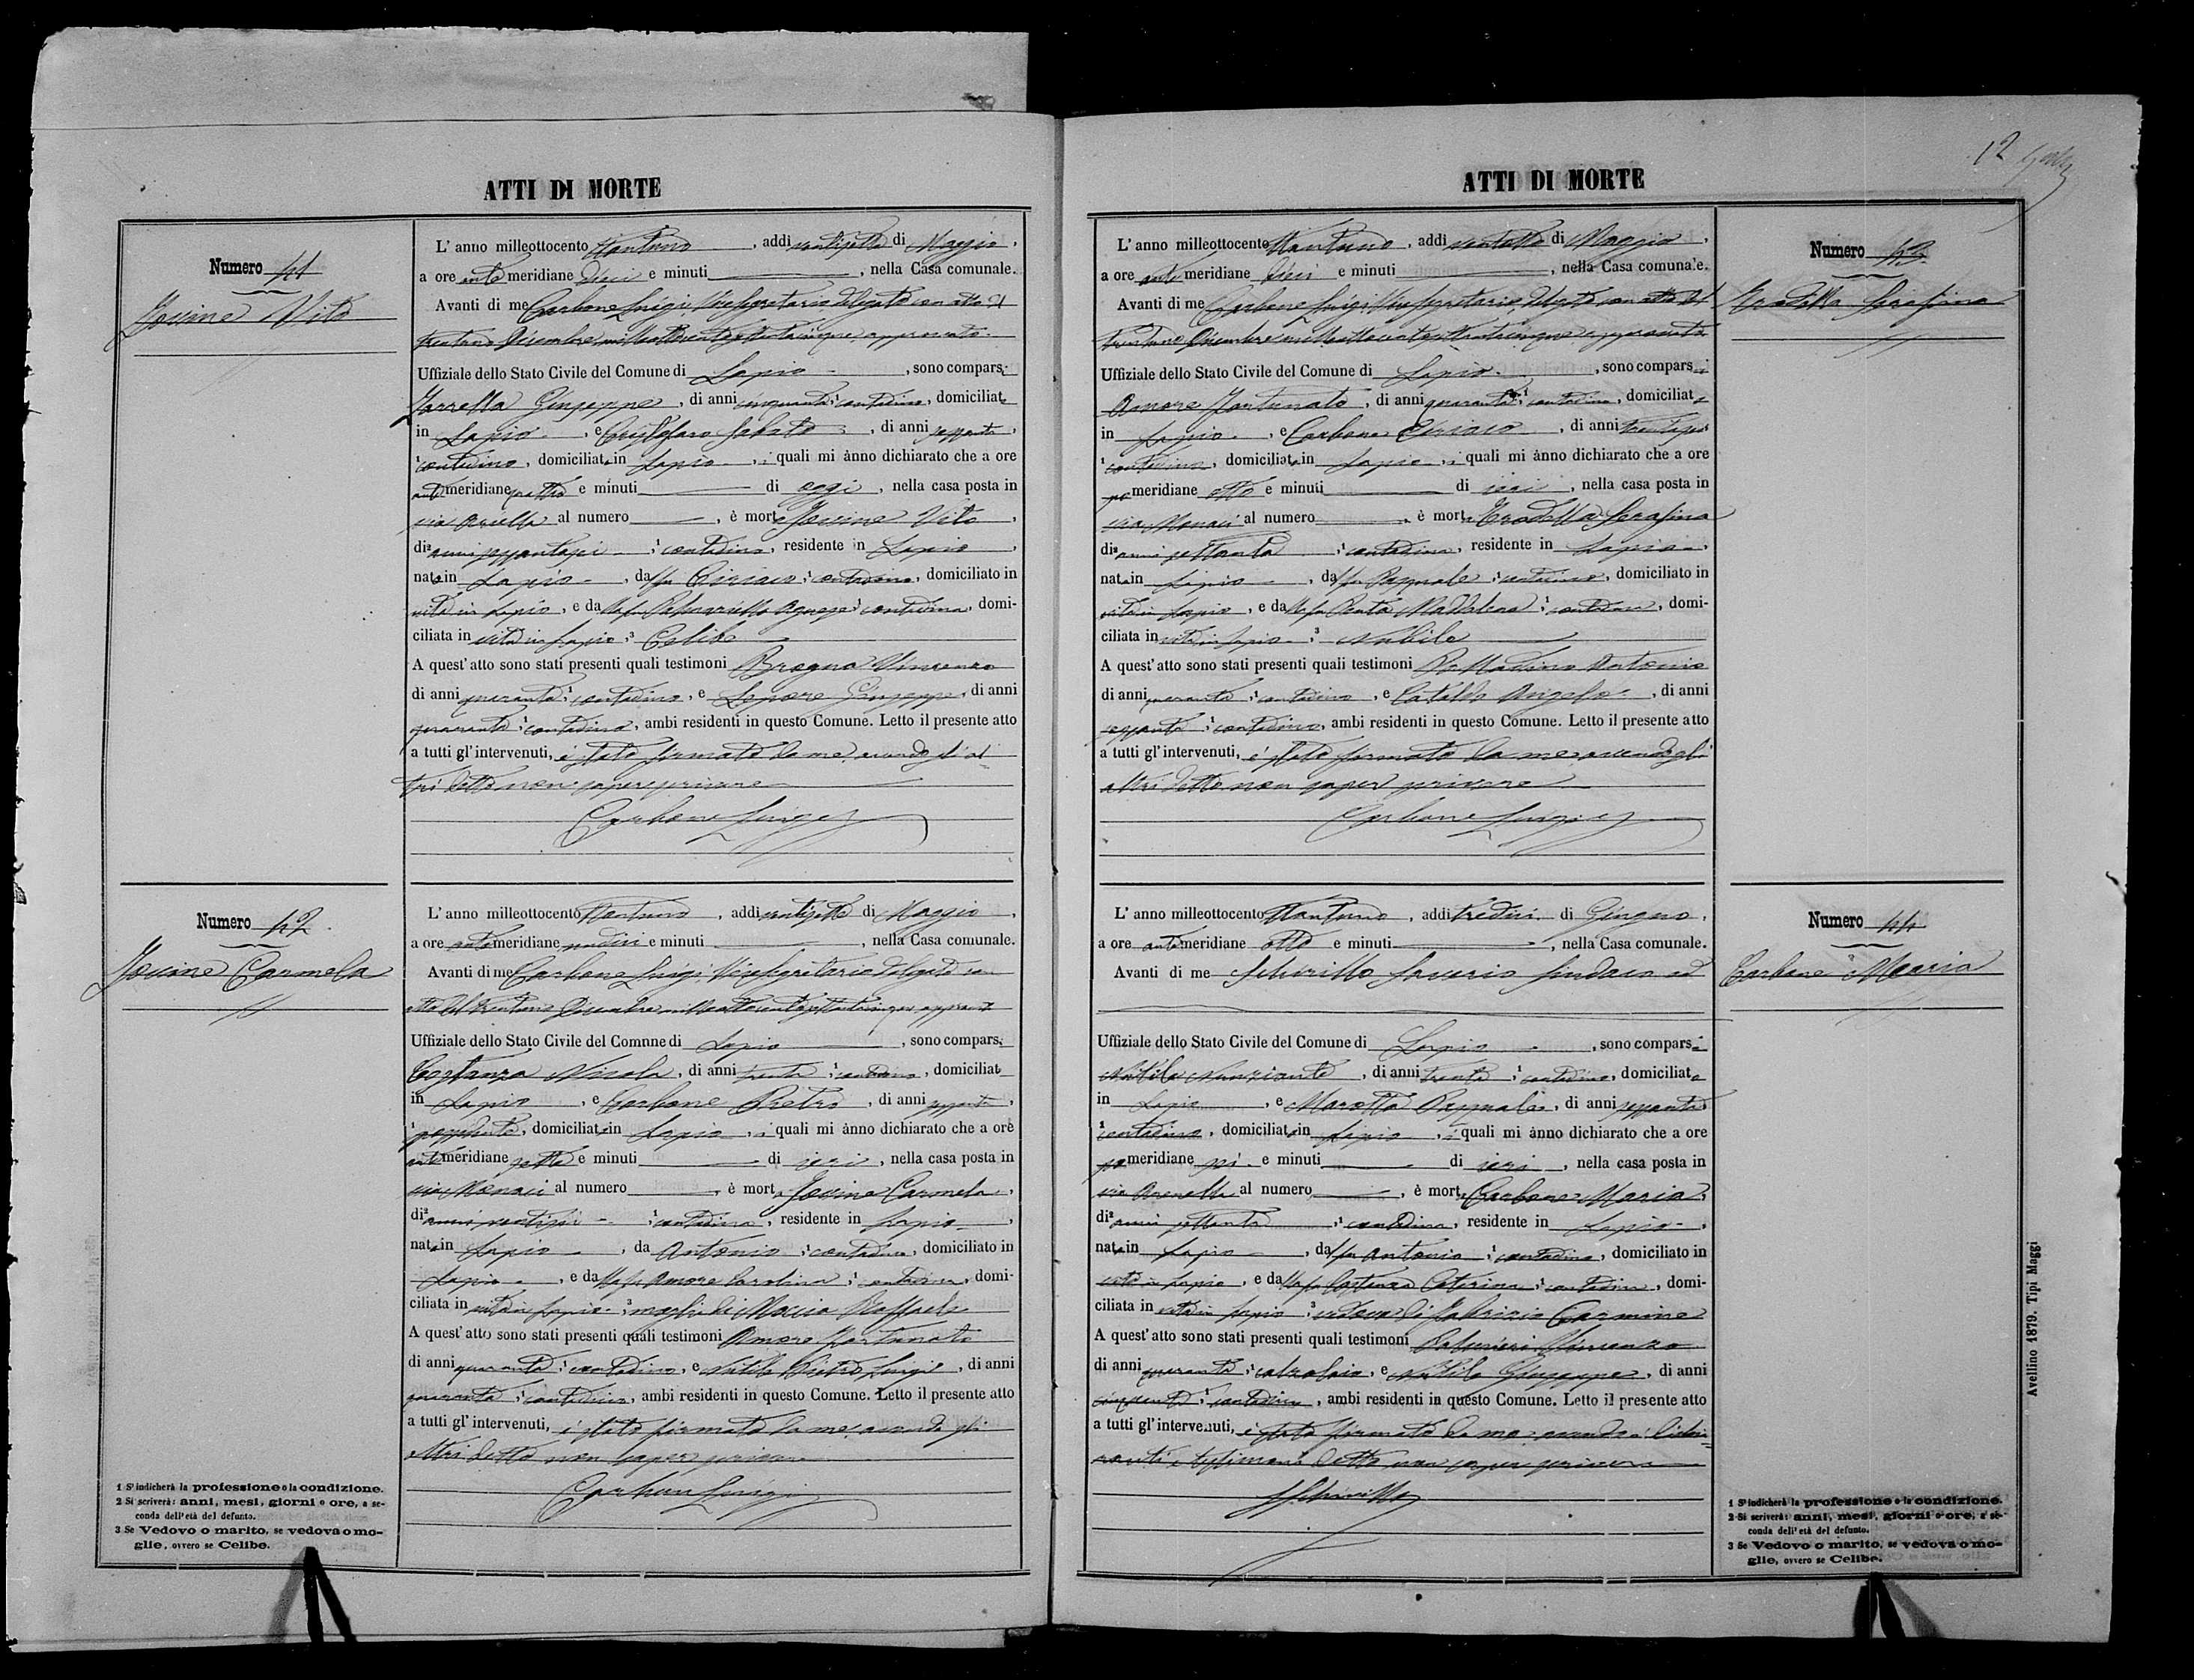 ATTI DI MORTE
Numero 41
Iovine Vito
L' anno milleottocento ottantuno, addì ventisette di Maggio,
a ore anti meridiane dieci e minuti, nella Casa comunale.
Avanti di me Carbone Luigi, Vice Segretario delegato con atto del
trentuno Dicembre milleottocentosettantacinque approvato
Uffiziale dello Stato Civile del Comune di Lapio, sono comparsi
Iarrella Giuseppe, di anni cinquanta, contadino, domiciliato
in Lapio, e Sabato, di anni sessanta,
contadino, domiciliato in Lapio, i quali mi ànno dichiarato che a ore
anti meridiane quattro e minuti di oggi, nella casa posta in
via al numero, è morto Iovine Vito,
di anni sessantasei, contadino, residente in Lapio,
nato in Lapio, da fu Ciriaco, contadino, domiciliato in
vita in Lapio, e da lla fu Agnese, contadina, domi-
ciliata in vita in Lapio, Celibe
A quest' atto sono stati presenti quali testimoni Brogna Vincenzo
di anni quaranta, contadino, e Lepore Giuseppe, di anni
quaranta, contadino, ambi residenti in questo Comune. Letto il presente atto
a tutti gl' intervenuti, è stato firmato da me, avendo gli al-
tri detto non sapere scrivere
Carbone Luigi
Numero 42
Iovine Carmela
L' anno milleottocento ottantuno, addì ventisette di Maggio,
a ore anti meridiane undici e minuti, nella Casa comunale.
Avanti di me Carbone Luigi, Vice Segretario delegato con
atto del trentuno Dicembre milleottocentosettantacinque approvato
Uffiziale dello Stato Civile del Comnne di Lapio, sono comparsi
Costanza Nicola, di anni trenta, contadino, domiciliato
in Lapio, e Carbone Pietro, di anni sessanta,
domiciliato in Lapio, i quali mi ànno dichiarato che a ore
anti meridiane sette e minuti di ieri, nella casa posta in
via Monaci al numero, è morta Iovine Carmela,
di anni ventisei, contadina, residente in Lapio,
nata in Lapio, da Antonio, contadino, domiciliato in
Lapio, e da lla fu Amore Carolina, contadina, domi-
ciliata in vita in Lapio, moglie di Raffaele
A quest' atto sono stati presenti quali testimoni Amore Fortunato
di anni quaranta, contadino, e Nobile Pietro Luigi, di anni
quaranta, contadino, ambi residenti in questo Comune. Letto il presente atto
a tutti gl' intervenuti, è stato firmato da me, avendo gli
altri detto non saper scrivere
Carbone Luigi
1 S' indicherà la professione o la condizione.
2 Si scriverà: anni, mesi, giorni o ore, a se-
conda dell' età del defunto.
3 Se Vedovo o marito, se vedova o mo-
glie, ovvero se Celibe.
12
ATTI DI MORTE
Numero 43
Serafina
L' anno milleottocento ottantuno, addì ventotto di Maggio,
a ore anti meridiane dieci e minuti, nella Casa comunale.
Avanti di me Carbone Luigi, Vice Segretario, delegato con atto del
trentuno Dicembre milleottocentosettantacinque approvato
Uffiziale dello Stato Civile del Comune di Lapio, sono comparsi
Amore Fortunato, di anni quaranta, contadino, domiciliato
in Lapio, e Carbone Ciriaco, di anni trentasei
contadino, domiciliato in Lapio, i quali mi ànno dichiarato che a ore
po meridiane otto e minuti di ieri, nella casa posta in
via Monaci al numero, è morta Serafina
di anni settanta, contadina, residente in Lapio,
nata in Lapio, da fu Pasquale, contadino, domiciliato in
vita in Lapio, e da lla fu Maddalena, contadina, domi-
ciliata in vita in Lapio, Nubile
A quest' atto sono stati presenti quali testimoni Antonio
di anni quaranta, contadino, e Cataldo Angelo, di anni
sessanta, contadino, ambi residenti in questo Comune. Letto il presente atto
a tutti gl' intervenuti, è stato firmato da me avendo gli
altri detto non saper scrivere
Carbone Luigi
Numero 44
Carbone Maria
L' anno milleottocento ottantuno, addì tredici di Giugno,
a ore anti meridiane otto e minuti, nella Casa comunale.
Avanti di me Schirillo Saverio Sindaco ed
Uffiziale dello Stato Civile del Comune di Lapio, sono comparsi
Nobile Nunziante, di anni trenta, contadino, domiciliato
in Lapio, e Marotta Pasquale, di anni sessanta
contadino, domiciliato in Lapio, i quali mi ànno dichiarato che a ore
po meridiane sei e minuti di ieri, nella casa posta in
via al numero, è morta Carbone Maria,
di anni settanta, contadina, residente in Lapio,
nata in Lapio, da fu Antonio, contadino, domiciliato in
vita in Lapio, e da lla fu Costanza Caterina, contadina, domi-
ciliata in vita in Lapio, vedova di Fabrizio Carmine
A quest' atto sono stati presenti quali testimoni Vincenzo
di anni quaranta, calzolaio, e Nobile Giuseppe, di anni
cinquanta, contadino, ambi residenti in questo Comune. Letto il presente atto
a tutti gl' intervenuti, è stato firmato da me avendo i dichia-
ranti e testimoni detto non sapere scrivere
Schirillo
1 S' indicherà la professione o la condizione.
2 Si scriverà: anni, mesi, giorni o ore, a se-
conda dell' età del defunto.
3 Se Vedovo o marito, se vedova o mo-
glie, ovvero se Celibe.
Avellino 1879. Tipi Maggi